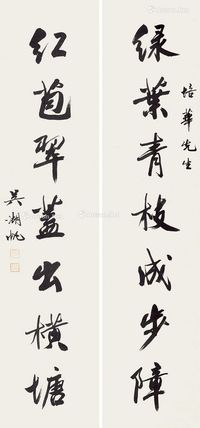 培華先生
绿葉青枝成步障
红苞翠蓋出横塘
吴湖帆